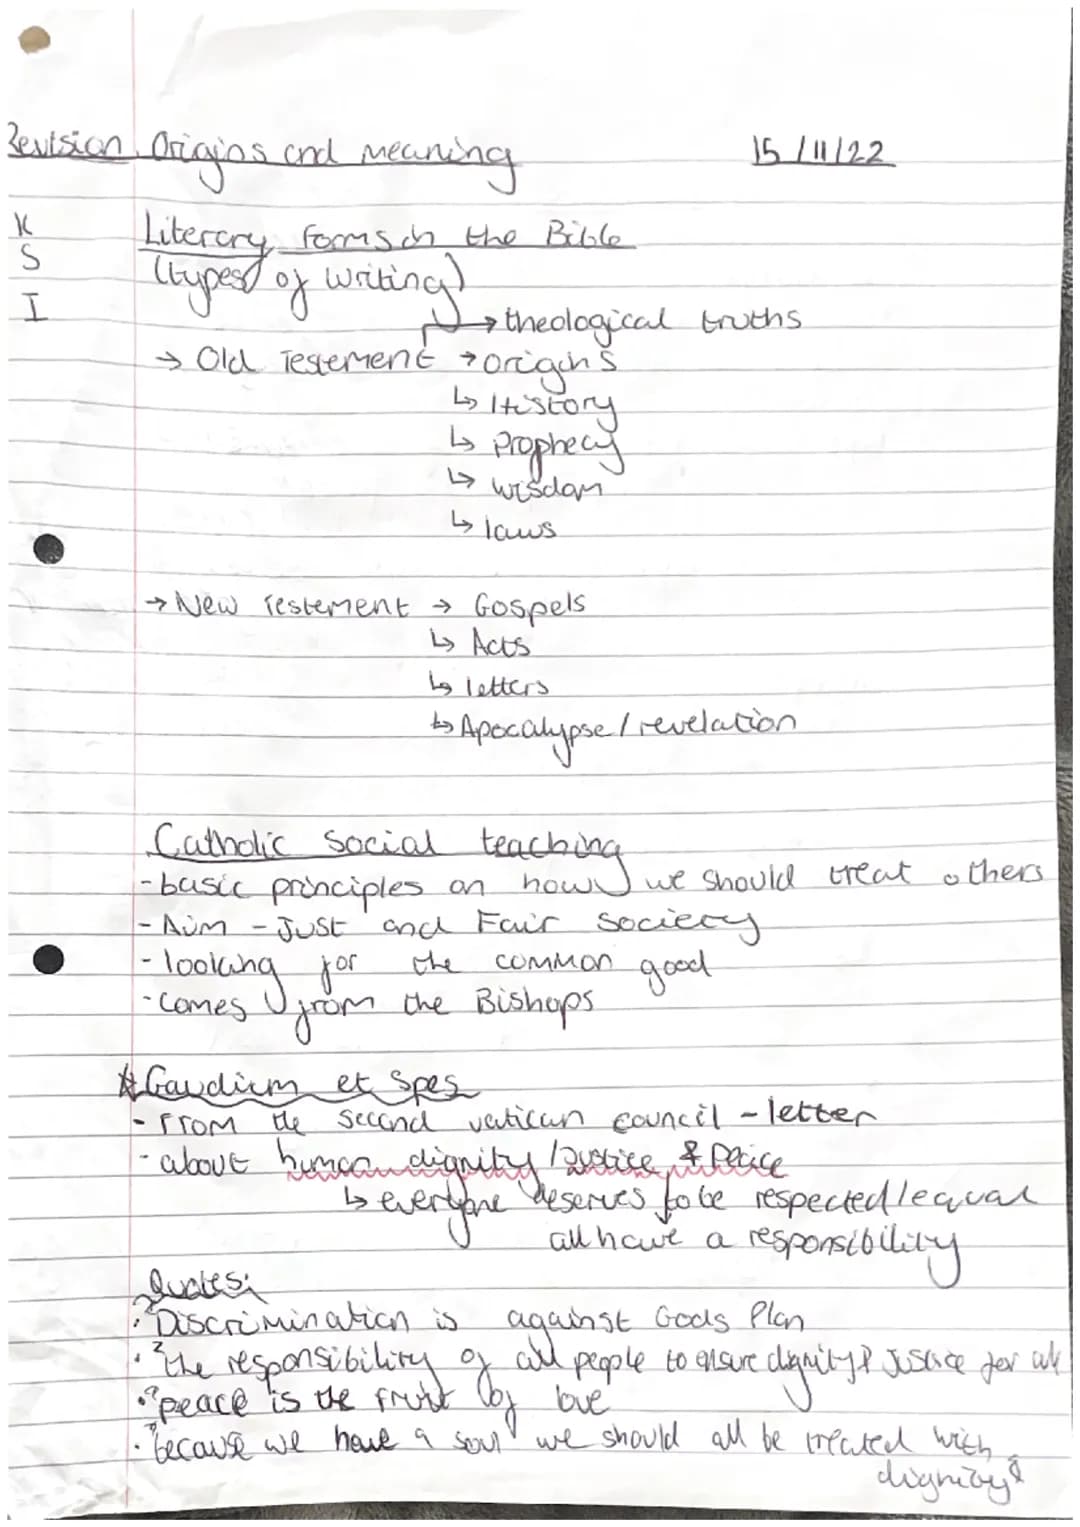 Revision Origins and Meaning 15/11/22
K
S
I
Literary Forms in the Bible
(types of writing)
→ theological truths
→ Old Testement → origins
↳ History
↳ Prophecy
↳ wisdom
↳ laws
→ New Testement → Gospels
↳ Acts
↳ letters
↳ Apocalypse / revelation
Catholic Social teaching
- basic principles on how we should treat others
- Aim - Just and Fair society
- looking for the common good
- comes from the Bishops
* Gaudium et Spes
- From the Second vatican council - letter
- about human dignity / justice & Peace
↳ everyone deserves to be respected / equal
all have a responsibility
Quotes:
· "Discrimination is against Gods Plan
· "the responsibility of all people to ensure dignity & Justice for all
· "peace is the fruit of love
· "because we have a soul we should all be treated with
dignity"